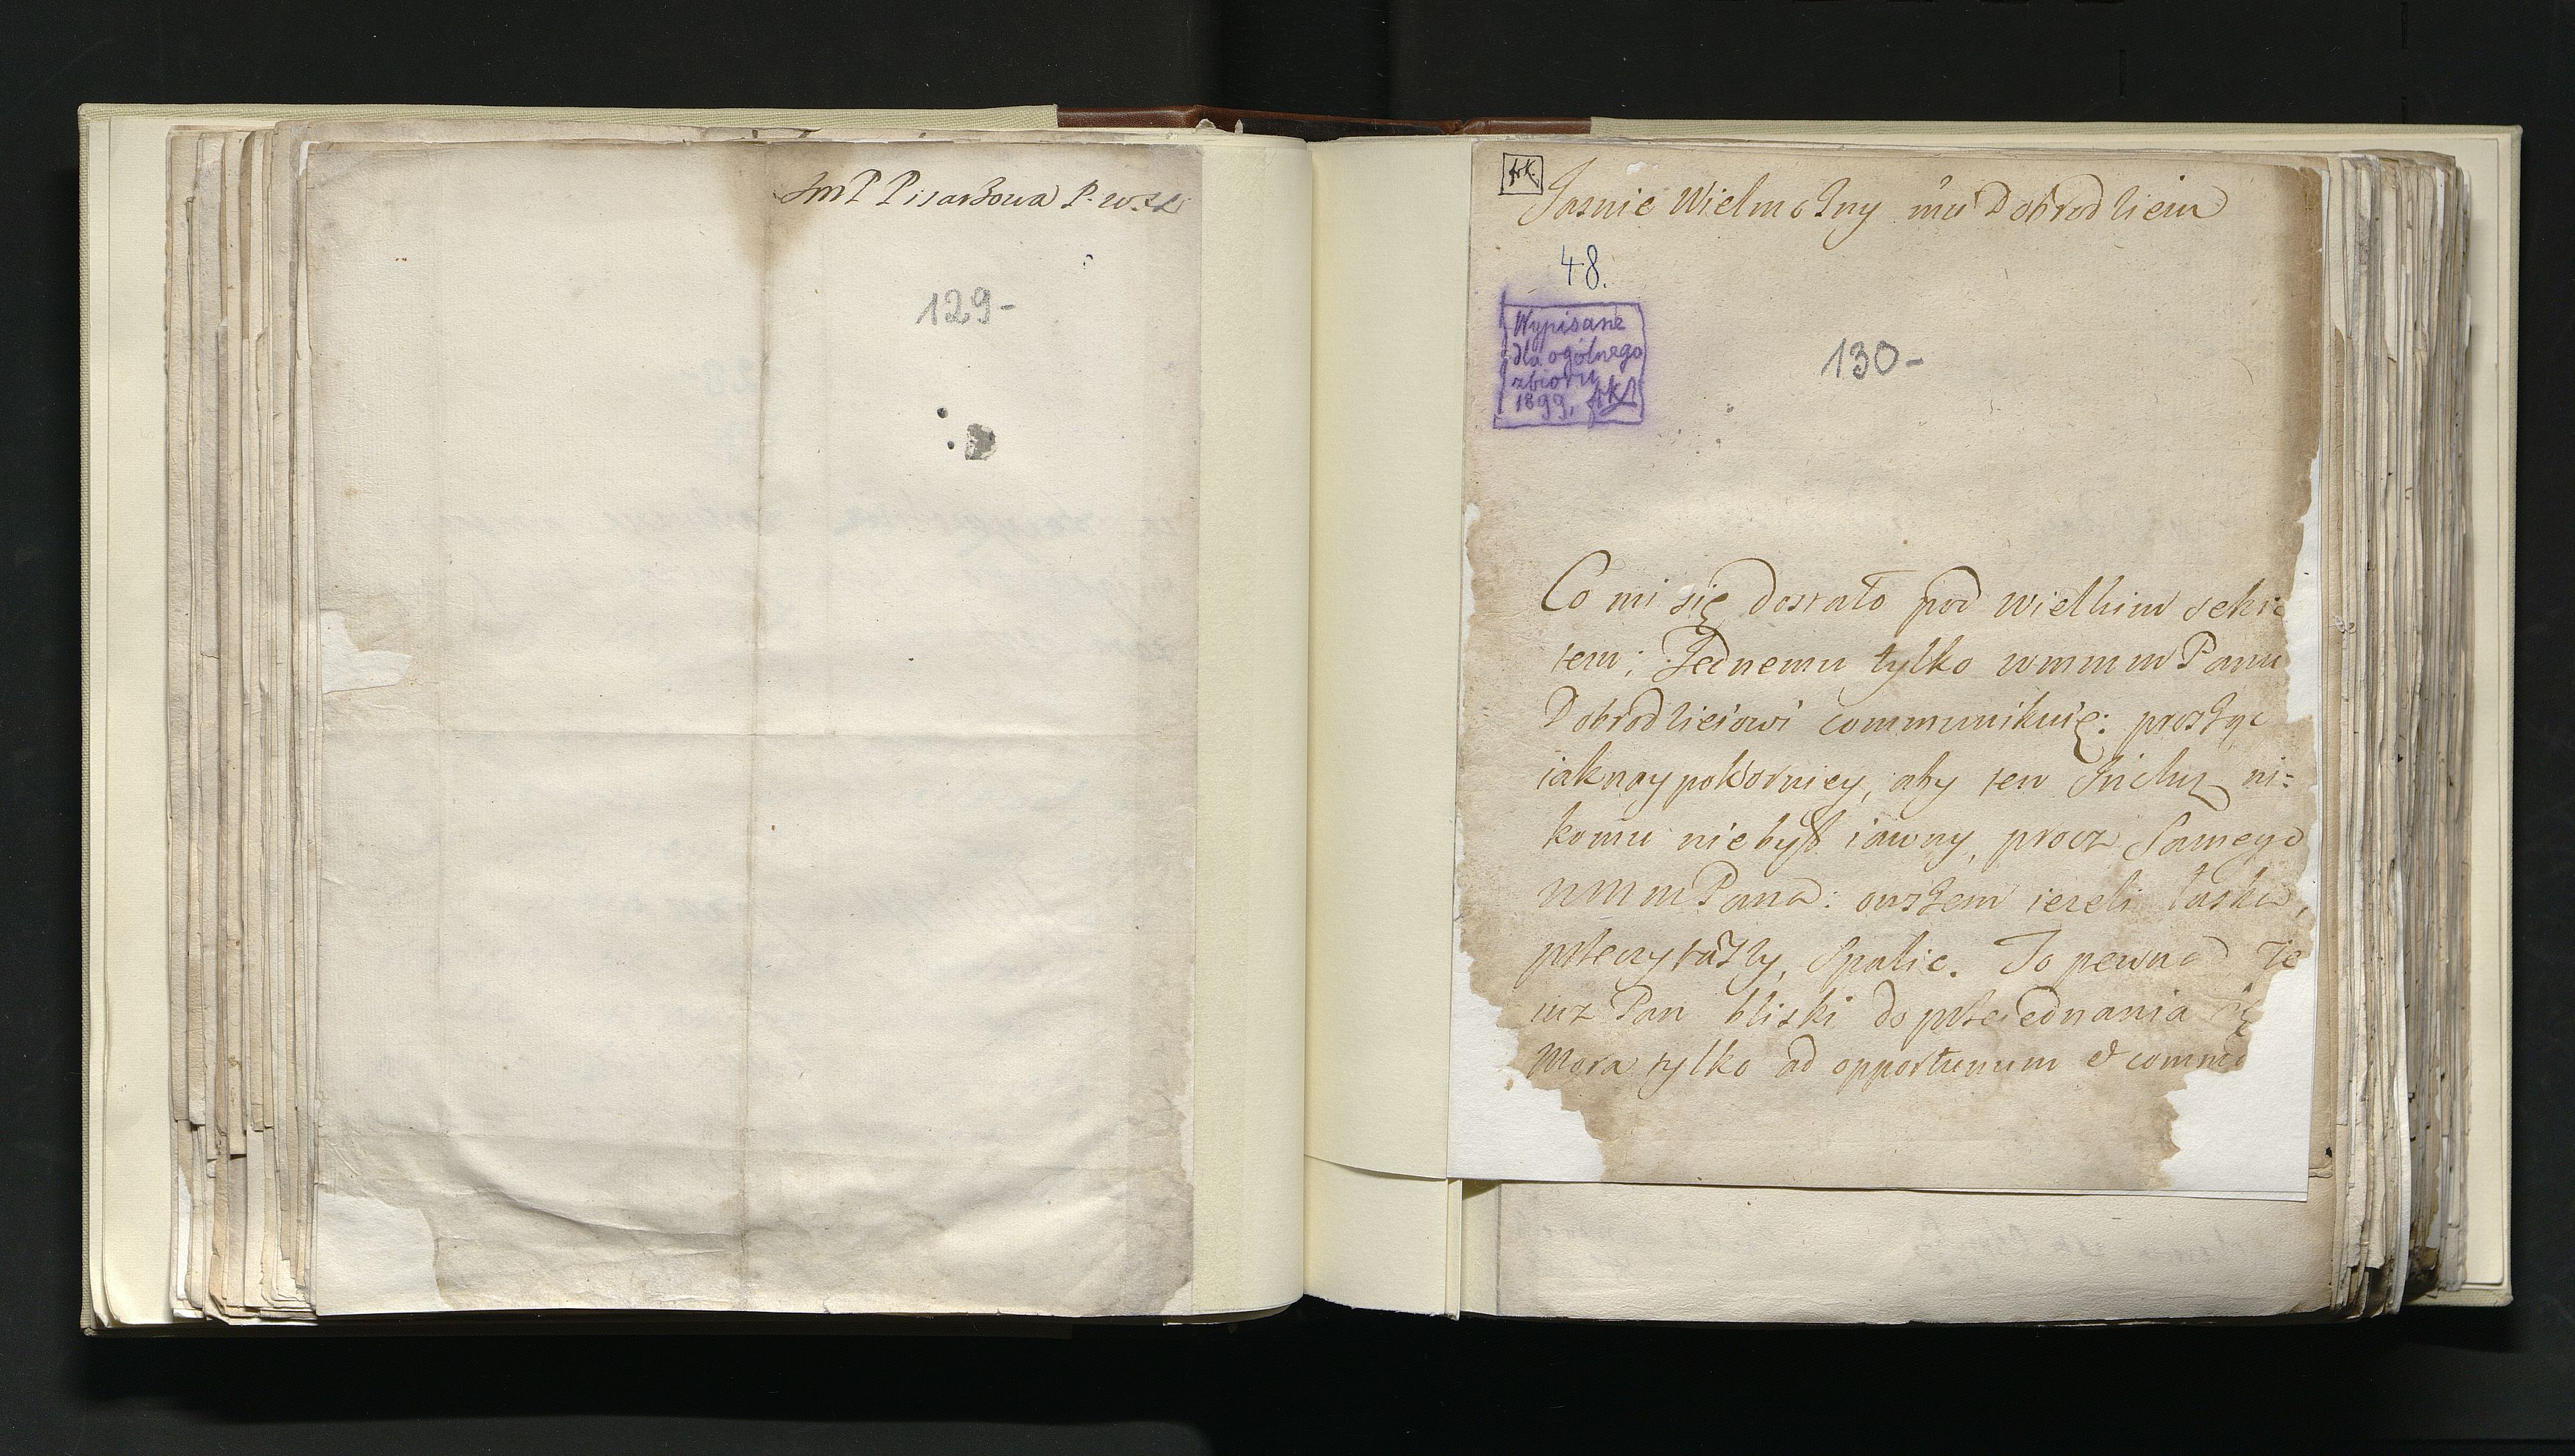 JmP Pisarzowa P. w.
129-
AK.
Jasnie Wielmożny mu Dobrodzieiu
48.
Wypisane
dla ogólnego
zbioru
1899, AKP
130-
Co mi się dostało pod wielkim sekre
tem; Jednemu tylko wmmm Panu
Dobrodzieiowi communikuię: prosząc
iaknaypokorniey, aby ten ni=
komu niebył iawny, procz Samego
wmm Pana: owszem iezeli łaska,
przeczytaszy, spalic. To pewna ze
iuz Pan bliski do przeiednania się
Mora tylko ad opportunum et commo